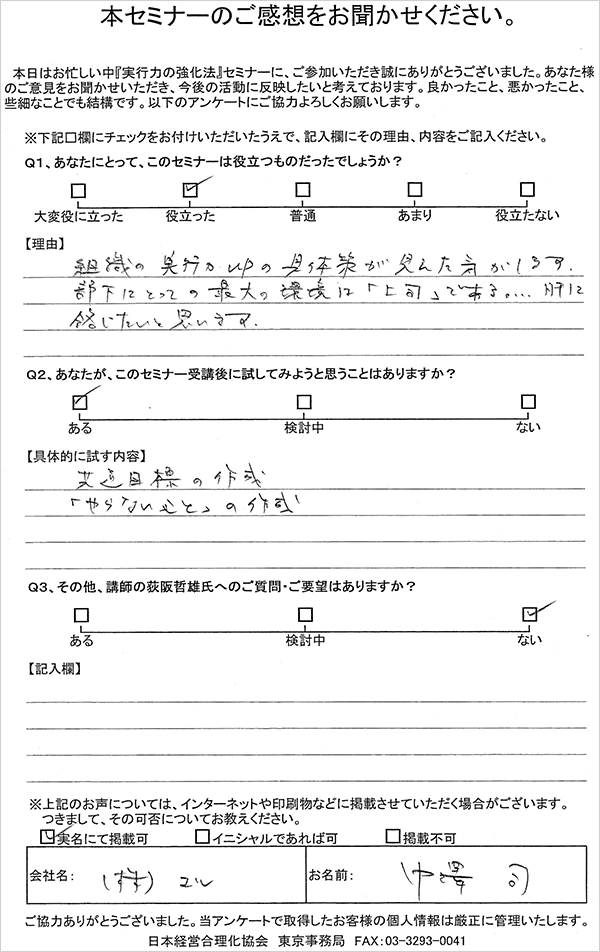 本セミナーのご感想をお聞かせください。
本日はお忙しい中『実行力の強化法』セミナーに、ご参加いただき誠にありがとうございました。あなた様
のご意見をお聞かせいただき、今後の活動に反映したいと考えております。良かったこと、悪かったこと、
些細なことでも結構です。以下のアンケートにご協力よろしくお願いします。
※下記口欄にチェックをお付けいただいたうえで、記入欄にその理由、内容をご記入ください。
Q1、あなたにとって、このセミナーは役立つものだったでしょうか？
大変役に立った 役立った 普通 あまり 役立たない
【理由】
組織の実行力upの具体策が見えた気がします.
部下にとっての最大の環境は「上司」である。... 肝に
銘じたいと思います.
Q2、あなたが、このセミナー受講後に試してみようと思うことはありますか？
ある 検討中 ない
【具体的に試す内容】
共通目標の作成
「やらないこと」の作成
Q3、その他、講師の荻阪哲雄氏へのご質問・ご要望はありますか？
ある 検討中 ない
【記入欄】
※上記のお声については、インターネットや印刷物などに掲載させていただく場合がございます。
つきまして、その可否についてお教えください。
実名にて掲載可 イニシャルであれば可 掲載不可
会社名： (株) エル お名前： 中澤 司
ご協力ありがとうございました。当アンケートで取得したお客様の個人情報は厳正に管理いたします。
日本経営合理化協会 東京事務局 FAX：03-3293-0041